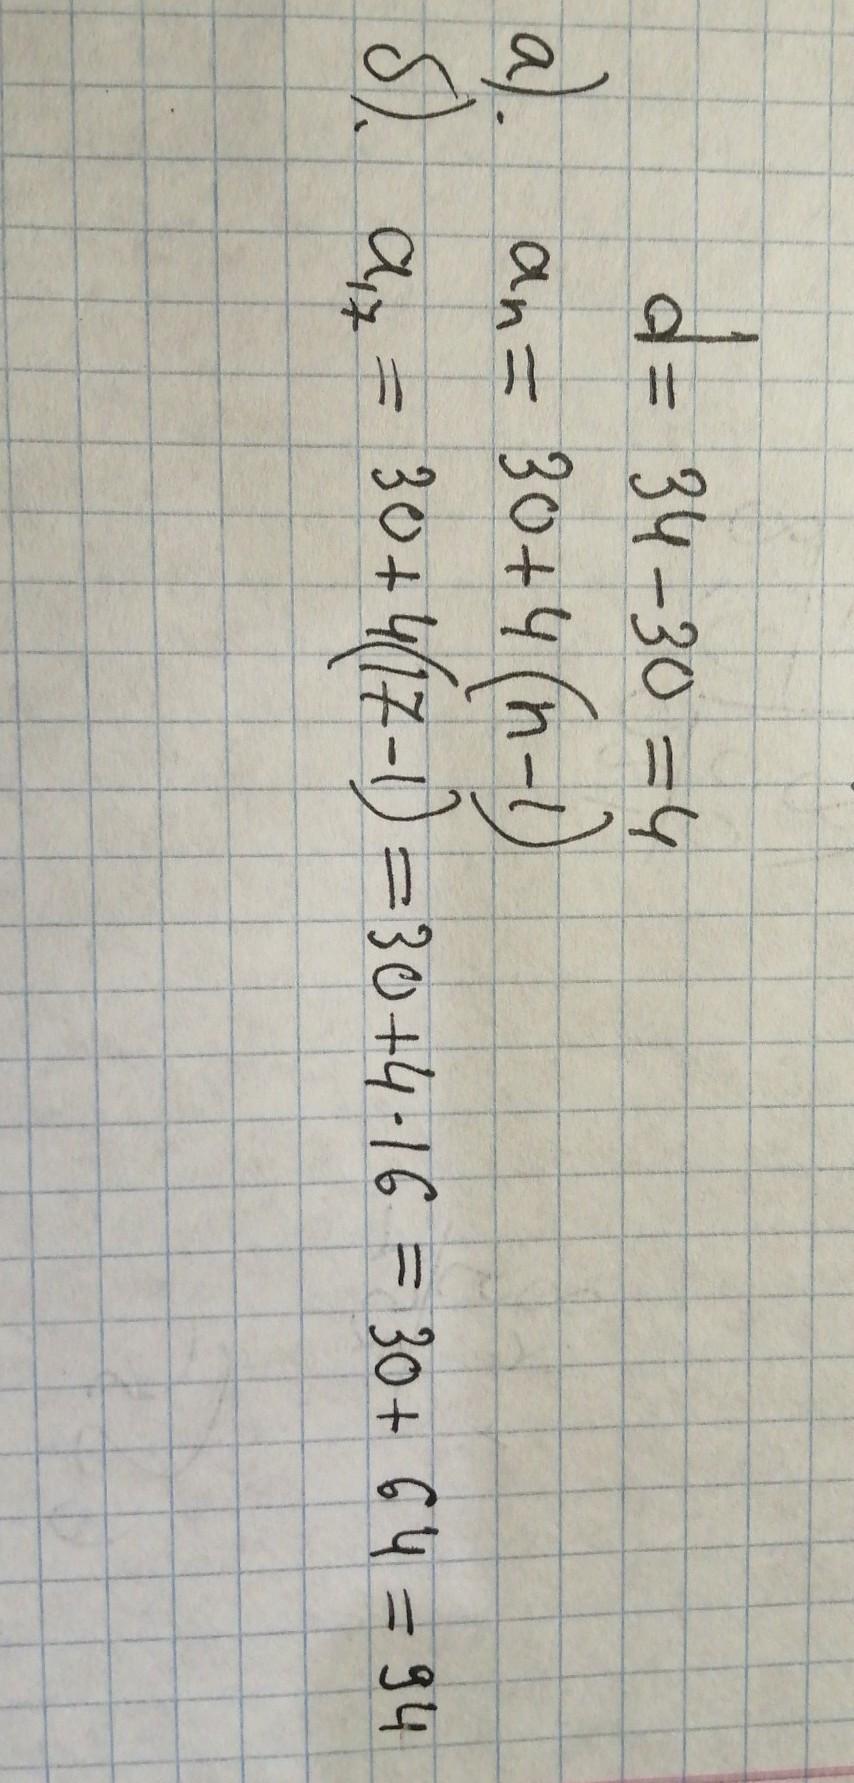 d = 34 - 30 = 4
а). aₙ = 30 + 4 (n - 1)
б). a₁₇ = 30 + 4 (17 - 1) = 30 + 4 · 16 = 30 + 64 = 94